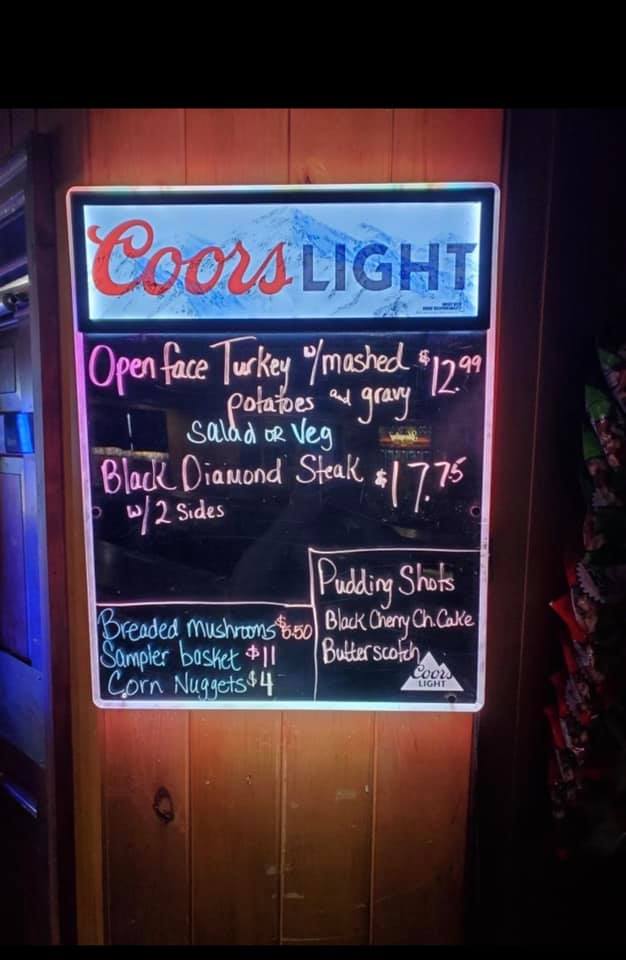 Coors LIGHT
Open face Turkey w/mashed $12.99
potatoes and gravy
Salad OR Veg
Black Diamond Steak $17.75
w/2 Sides
Pudding Shots
Black Cherry Ch.Cake
Butterscotch
Breaded mushrooms
Sampler basket $11
Corn Nuggets $4
Coors
LIGHT